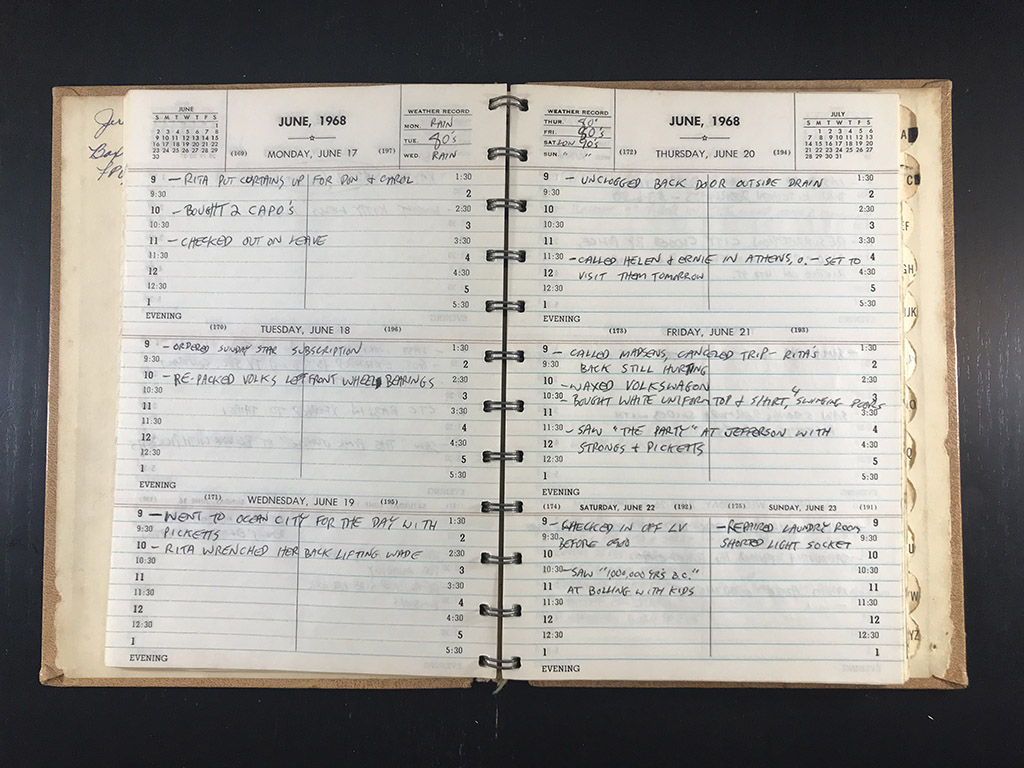 JUNE
S M T W T F S
1
2 3 4 5 6 7 8
9 10 11 12 13 14 15
16 17 18 19 20 21 22
23 24 25 26 27 28 29
30
JUNE, 1968
WEATHER RECORD
MON. RAIN
TUE. 80's
WED. RAIN
(169) MONDAY, JUNE 17 (197)
9 - RITA PUT CURTAINS UP FOR DON & CAROL 1:30
9:30 2
10 - BOUGHT 2 CAPO'S 2:30
10:30 3
11 - CHECKED OUT ON LEAVE 3:30
11:30 4
12 4:30
12:30 5
1 5:30
EVENING
(170) TUESDAY, JUNE 18 (196)
9 - ORDERED SUNDAY STAR SUBSCRIPTION 1:30
9:30 2
10 - RE-PACKED VOLKS LEFT FRONT WHEEL BEARINGS 2:30
10:30 3
11 3:30
11:30 4
12 4:30
12:30 5
1 5:30
EVENING
(171) WEDNESDAY, JUNE 19 (195)
9 - WENT TO OCEAN CITY FOR THE DAY WITH 1:30
9:30 PICKETTS 2
10 - RITA WRENCHED HER BACK LIFTING WADE 2:30
10:30 3
11 3:30
11:30 4
12 4:30
12:30 5
1 5:30
EVENING
WEATHER RECORD
THUR. 80'
FRI. 80's
SAT. LOW 90's
SUN. " "
JUNE, 1968
JULY
S M T W T F S
1 2 3 4 5 6
7 8 9 10 11 12 13
14 15 16 17 18 19 20
21 22 23 24 25 26 27
28 29 30 31
(172) THURSDAY, JUNE 20 (194)
9 - UNCLOGGED BACK DOOR OUTSIDE DRAIN 1:30
9:30 2
10 2:30
10:30 3
11 3:30
11:30 - CALLED HELEN & ERNIE IN ATHENS, O. - SET TO 4
12 VISIT THEM TOMORROW 4:30
12:30 5
1 5:30
EVENING
(173) FRIDAY, JUNE 21 (193)
9 - CALLED MADSENS, CANCELED TRIP - RITA'S 1:30
9:30 BACK STILL HURTING 2
10 - WAXED VOLKSWAGON 2:30
10:30 - BOUGHT WHITE UNIFORM TOP & SHIRT, 3
11 3:30
11:30 - SAW "THE PARTY" AT JEFFERSON WITH 4
12 STRONGS & PICKETTS 4:30
12:30 5
1 5:30
EVENING
(174) SATURDAY, JUNE 22 (192)
9 - CHECKED IN OFF LV
9:30 BEFORE
10
10:30 - SAW "1,000,000 YRS B.C."
11 AT BOLLING WITH KIDS
11:30
12
12:30
1
EVENING
(175) SUNDAY, JUNE 23 (191)
- REPAIRED LAUNDRY ROOM 9
SHORTED LIGHT SOCKET 9:30
10
10:30
11
11:30
12
12:30
1
A
C
EF
GH
JK
O
Q
U
W
YZ